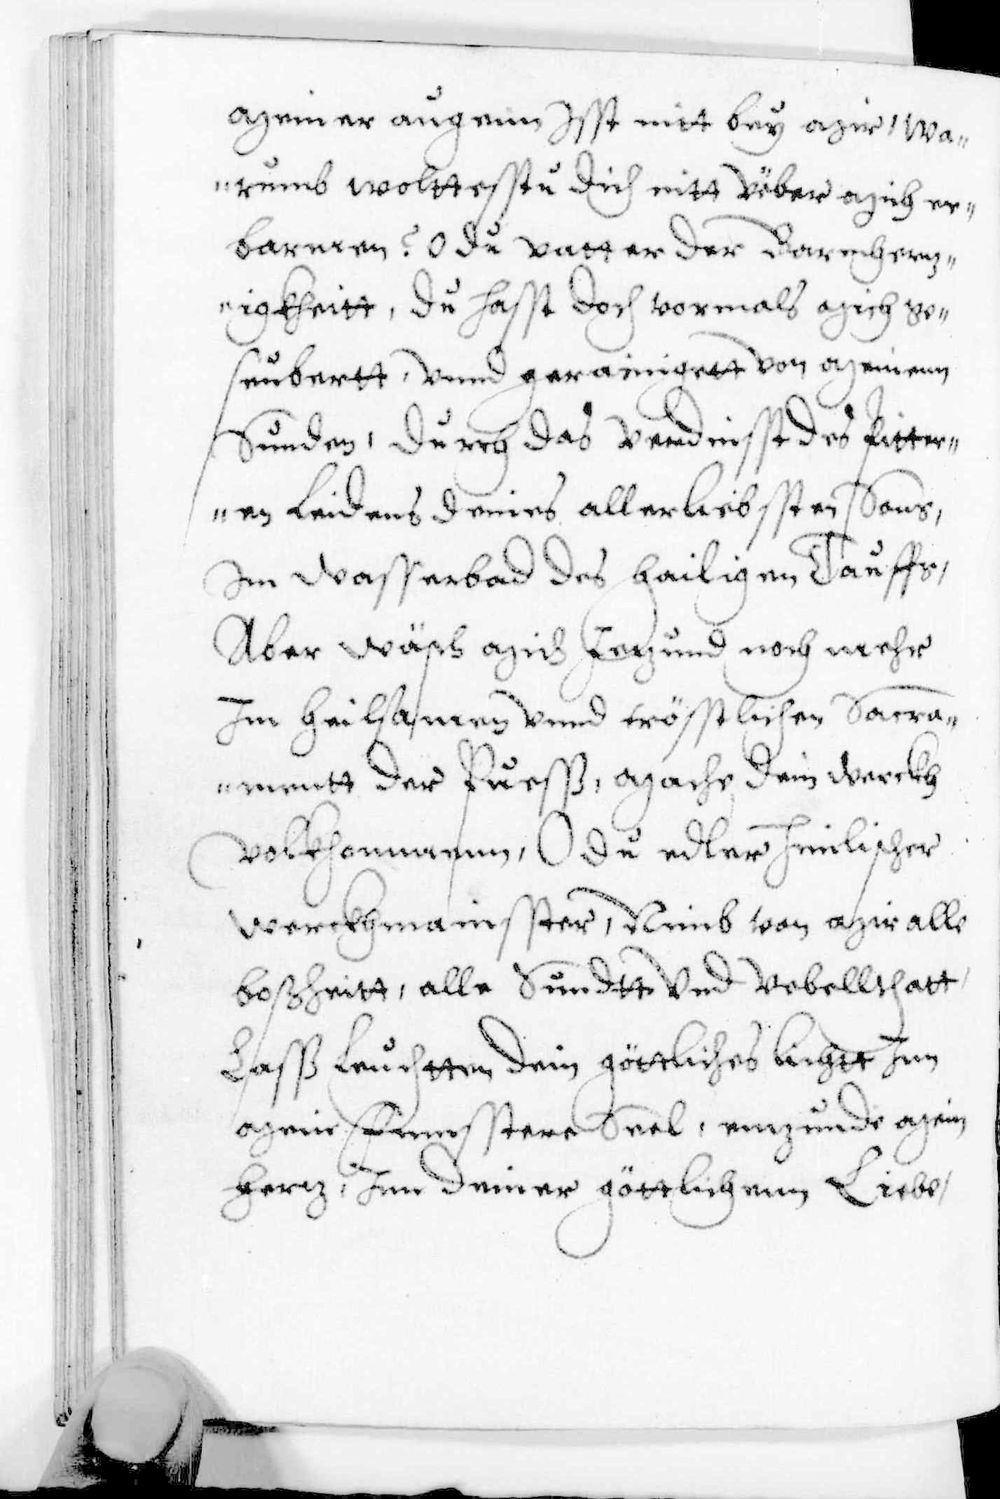 meiner augenn Isst nitt bey mir, Wa„
„rumb wolttesstu dich nitt vöber mich er„
barmen? O du vatter der Barmhertz„
„igkheitt, du hasst doch vormals mich ge„
seubertt, vnnd gerainigett von meinenn
Sünden, durch das verdiensst des Pitter„
„en Leidens deines allerliebssten Sons,
Im wasserbad des hailigen Tauffs,
Aber wäsch mich Jetzund noch mehr
Im heilsamen vnnd trösstlichen Sacra„
„mentt der Puessß, mache dein werckh
volkhommenn, O du edler himlischer
werckhmainsster, Nimb von mir alle
boßheitt, alle Sündtt Vnd Vebellthatt,
Lassß Leuchtten dein göttliches liechtt Inn
meine Finnsstere Seel, entzünde mein
hertz, Inn deiner göttlichenn Liebe,